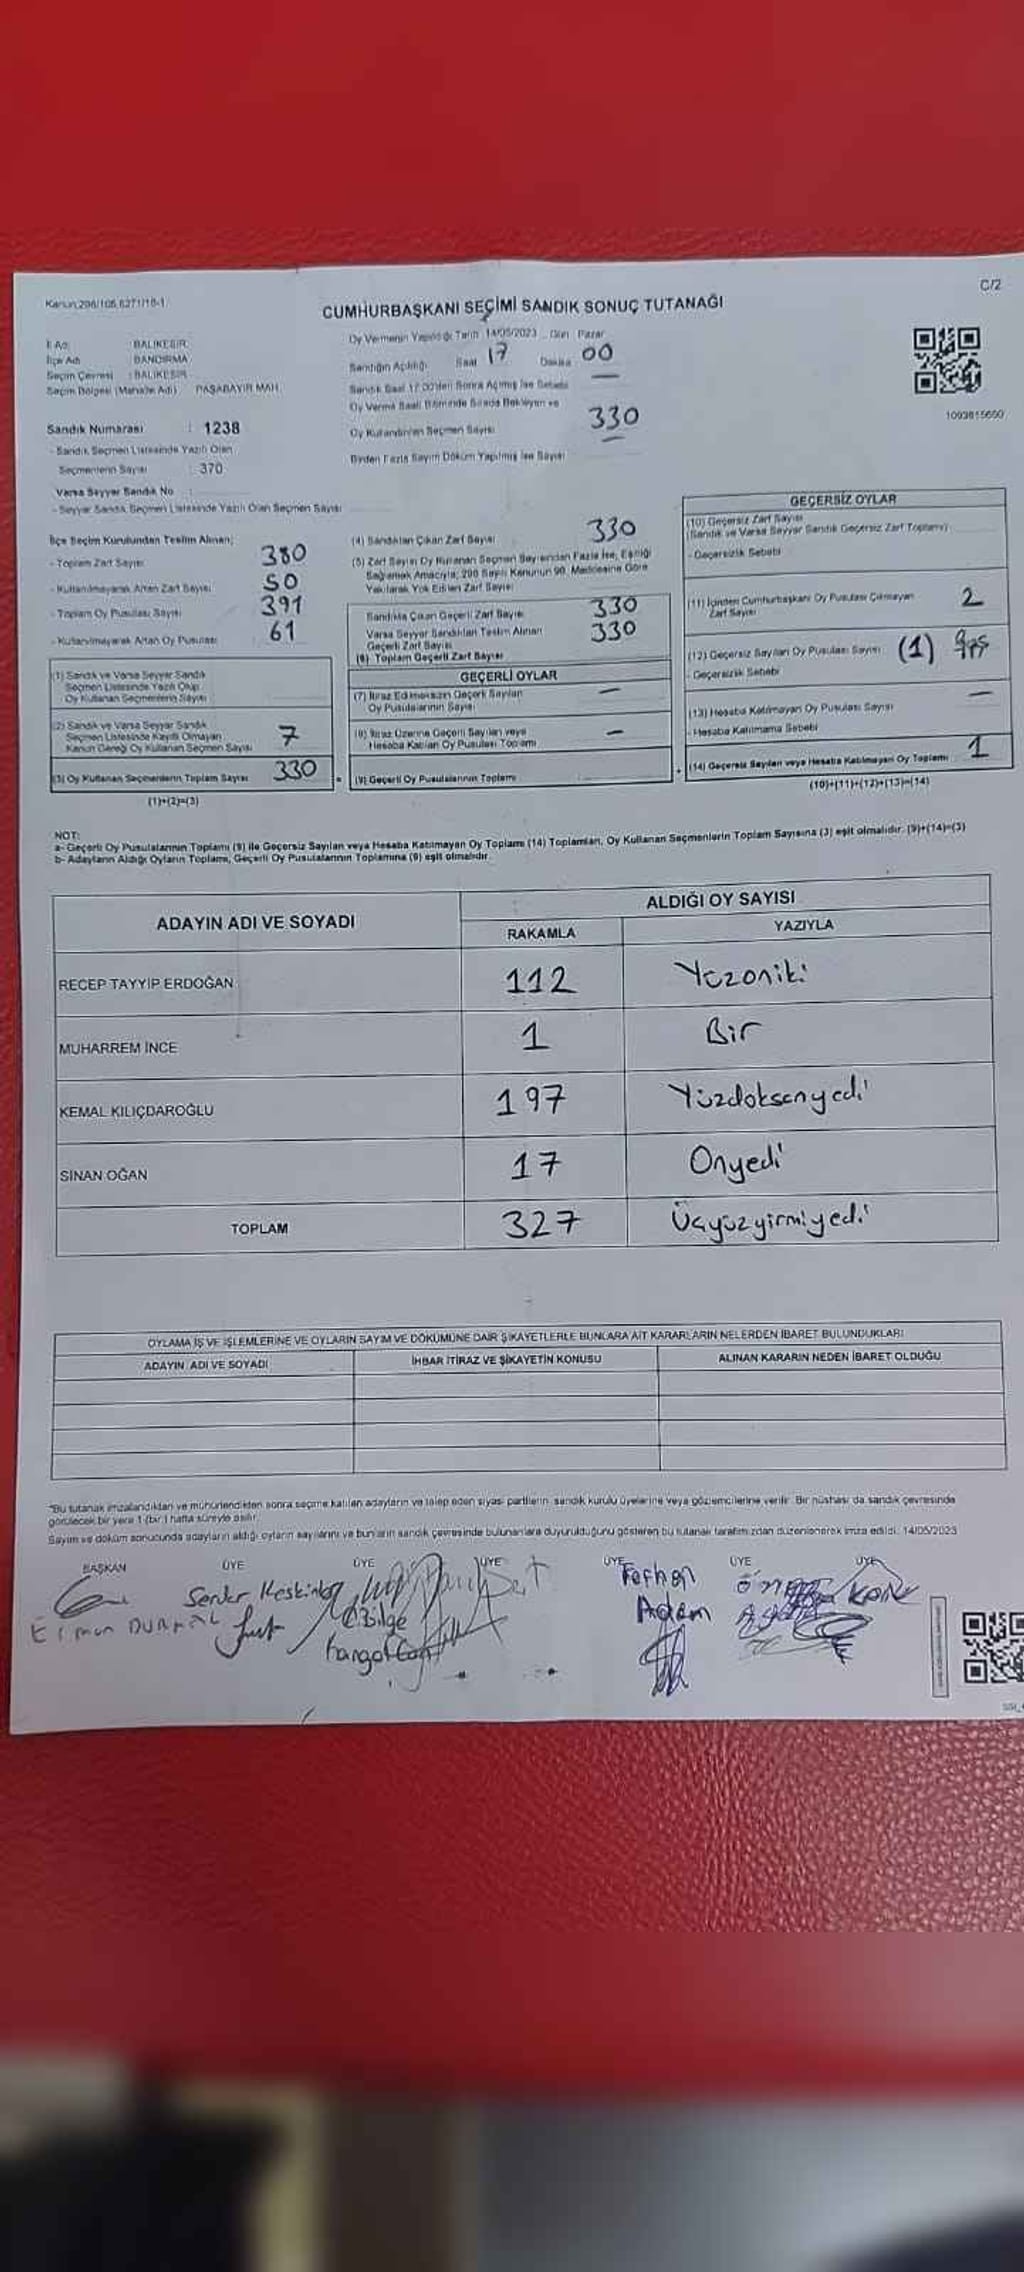 Kanun:298/105,6271/18-1
C/2
CUMHURBAŞKANI SEÇİMİ SANDIK SONUÇ TUTANAĞI
İl Adı : BALIKESİR
İlçe Adı : BANDIRMA
Seçim Çevresi : BALIKESİR
Seçim Bölgesi (Mahalle Adı) PAŞABAYIR MAH.
Sandık Numarası : 1238
- Sandık Seçmen Listesinde Yazılı Olan
Seçmenlerin Sayısı : 370
Varsa Seyyar Sandık No :
- Seyyar Sandık Seçmen Listesinde Yazılı Olan Seçmen Sayısı
Oy Vermenin Yapıldığı Tarih 14/05/2023 Gün Pazar
Sandığın Açıldığı Saat 17 Dakika 00
Sandık Saat 17:00'den Sonra Açılmış İse Sebebi —
Oy Verme Saati Bitiminde Sırada Bekleyen ve
Oy Kullandırılan Seçmen Sayısı 330
Birden Fazla Sayım Döküm Yapılmış İse Sayısı —
İlçe Seçim Kurulundan Teslim Alınan;
- Toplam Zarf Sayısı 380
- Kullanılmayarak Artan Zarf Sayısı 50
- Toplam Oy Pusulası Sayısı 391
- Kullanılmayarak Artan Oy Pusulası 61
(1) Sandık ve Varsa Seyyar Sandık
Seçmen Listesinde Yazılı Olup
Oy Kullanan Seçmenlerin Sayısı
(2) Sandık ve Varsa Seyyar Sandık
Seçmen Listesinde Kayıtlı Olmayan
Kanun Gereği Oy Kullanan Seçmen Sayısı 7
(3) Oy Kullanan Seçmenlerin Toplam Sayısı 330
(1)+(2)=(3)
(4) Sandıktan Çıkan Zarf Sayısı 330
(5) Zarf Sayısı Oy Kullanan Seçmen Sayısından Fazla İse, Eşitliği
Sağlamak Amacıyla, 298 Sayılı Kanunun 98. Maddesine Göre
Yakılarak Yok Edilen Zarf Sayısı
Sandıkta Çıkan Geçerli Zarf Sayısı 330
Varsa Seyyar Sandıktan Teslim Alınan
Geçerli Zarf Sayısı 330
(6) Toplam Geçerli Zarf Sayısı
GEÇERLİ OYLAR
(7) İtiraz Edilmeksizin Geçerli Sayılan
Oy Pusulalarının Sayısı —
(8) İtiraz Üzerine Geçerli Sayılan veya
Hesaba Katılan Oy Pusulası Toplamı —
(9) Geçerli Oy Pusulalarının Toplamı
1093815660
GEÇERSİZ OYLAR
(10) Geçersiz Zarf Sayısı
(Sandık ve Varsa Seyyar Sandık Geçersiz Zarf Toplamı)
- Geçersizlik Sebebi
(11) İçinden Cumhurbaşkanı Oy Pusulası Çıkmayan
Zarf Sayısı 2
(12) Geçersiz Sayılan Oy Pusulası Sayısı (1)
- Geçersizlik Sebebi
(13) Hesaba Katılmayan Oy Pusulası Sayısı —
- Hesaba Katılmama Sebebi
(14) Geçersiz Sayılan veya Hesaba Katılmayan Oy Toplamı 1
(10)+(11)+(12)+(13)=(14)
NOT:
a- Geçerli Oy Pusulalarının Toplamı (9) ile Geçersiz Sayılan veya Hesaba Katılmayan Oy Toplamı (14) Toplamları, Oy Kullanan Seçmenlerin Toplam Sayısına (3) eşit olmalıdır. (9)+(14)=(3)
b- Adayların Aldığı Oyların Toplamı, Geçerli Oy Pusulalarının Toplamına (9) eşit olmalıdır.
ADAYIN ADI VE SOYADI
ALDIĞI OY SAYISI
RAKAMLA YAZIYLA
RECEP TAYYİP ERDOĞAN 112 Yüzoniki
MUHARREM İNCE 1 Bir
KEMAL KILIÇDAROĞLU 197 Yüzdoksanyedi
SİNAN OĞAN 17 Onyedi
TOPLAM 327 Üçyüzyirmiyedi
OYLAMA İŞ VE İŞLEMLERİNE VE OYLARIN SAYIM VE DÖKÜMÜNE DAİR ŞİKAYETLERLE BUNLARA AİT KARARLARIN NELERDEN İBARET BULUNDUKLARI
ADAYIN ADI VE SOYADI İHBAR İTİRAZ VE ŞİKAYETİN KONUSU ALINAN KARARIN NEDEN İBARET OLDUĞU
*Bu tutanak imzalandıktan ve mühürlendikten sonra seçime katılan adayların ve talep eden siyasi partilerin sandık kurulu üyelerine veya gözlemcilerine verilir. Bir nüshası da sandık çevresinde
görülecek bir yere 1 (bir) hafta süreyle asılır.
Sayım ve döküm sonucunda adayların aldığı oyların sayılarını ve bunların sandık çevresinde bulunanlara duyurulduğunu gösteren bu tutanak tarafımızdan düzenlenerek imza edildi. 14/05/2023
BAŞKAN ÜYE ÜYE ÜYE ÜYE ÜYE ÜYE
Serdar Keskin
Bilge
Ferhan
Adem